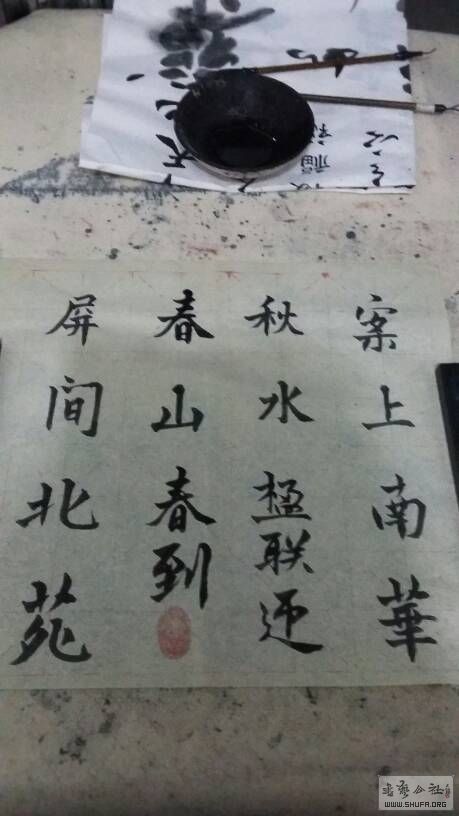 案上南華
秋水楹联迎
春山春到
屏间北苑
福
书艺公社
WWW.SHUFA.ORG